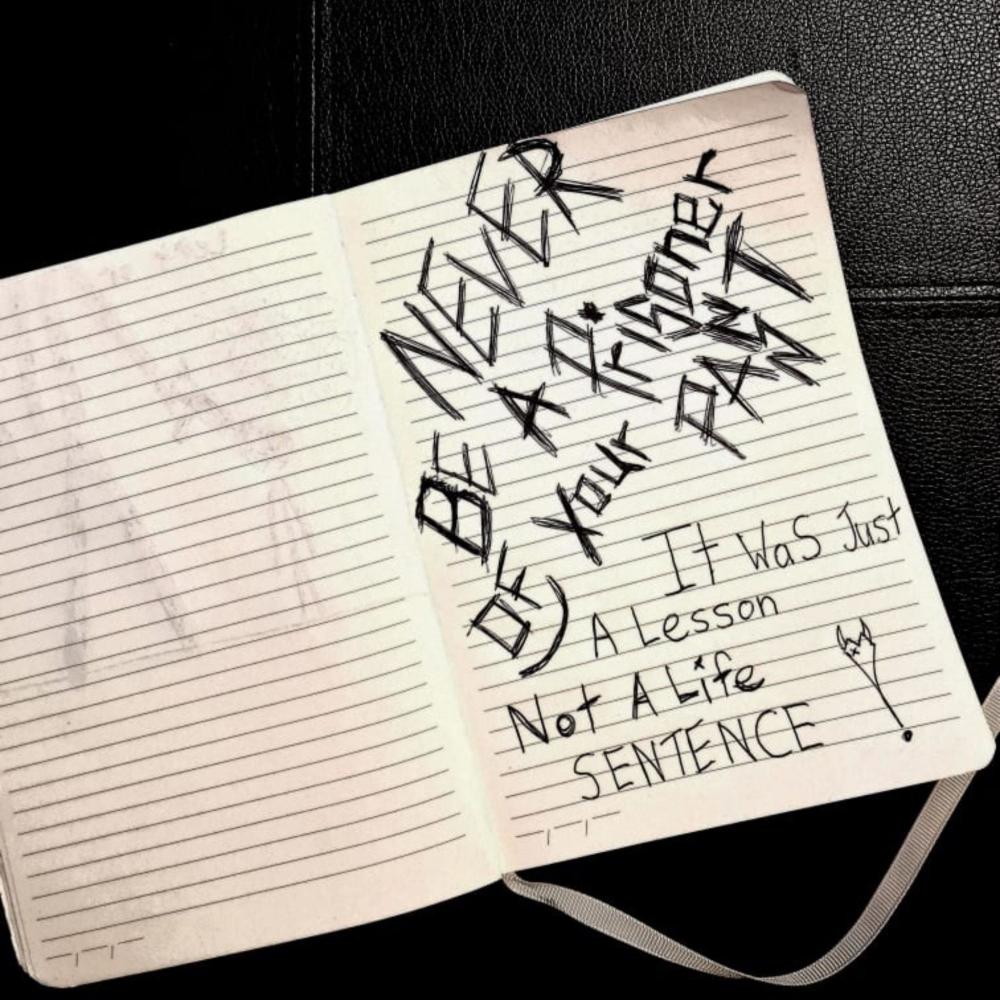 NEVER
BE A Prisoner
OF Your PAST
It Was Just
A Lesson
Not A Life
SENTENCE !